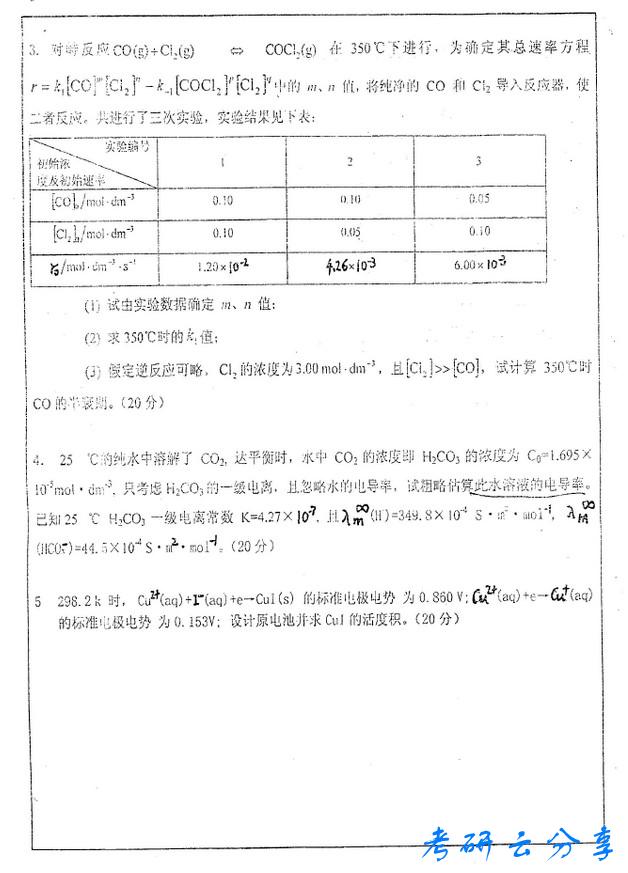 3. 对峙反应 CO(g)+Cl₂(g) ⇔ COCl₂(g) 在 350℃下进行，为确定其总速率方程
r = k₁[CO]ᵐ[Cl₂]ⁿ − k₋₁[COCl₂]ᵖ[Cl₂]^q 中的 m、n 值，将纯净的 CO 和 Cl₂ 导入反应器，使
二者反应。共进行了三次实验，实验结果见下表：
实验编号 1 2 3
初始浓
度及初始速率
[CO]₀/mol·dm⁻³ 0.10 0.10 0.05
[Cl₂]₀/mol·dm⁻³ 0.10 0.05 0.10
r₀/mol·dm⁻³·s⁻¹ 1.20×10⁻² 4.26×10⁻³ 6.00×10⁻³
(1) 试由实验数据确定 m、n 值；
(2) 求 350℃时的 k₁ 值；
(3) 假定逆反应可略，Cl₂ 的浓度为 3.00 mol·dm⁻³，且[Cl₂]>>[CO]，试计算 350℃时
CO 的半衰期。（20 分）
4. 25 ℃的纯水中溶解了 CO₂, 达平衡时，水中 CO₂ 的浓度即 H₂CO₃ 的浓度为 C₀=1.695×
10⁻⁵mol·dm⁻³, 只考虑 H₂CO₃ 的一级电离，且忽略水的电导率，试粗略估算此水溶液的电导率。
已知 25 ℃ H₂CO₃ 一级电离常数 K=4.27×10⁻⁷, 且λₘ^∞(H⁺)=349.8×10⁻⁴ S·m²·mol⁻¹, λₘ^∞
(HCO₃⁻)=44.5×10⁻⁴ S·m²·mol⁻¹。（20 分）
5 298.2 k 时，Cu²⁺(aq)+I⁻(aq)+e→CuI(s) 的标准电极电势 为 0.860 V; Cu²⁺(aq)+e→Cu⁺(aq)
的标准电极电势 为 0.153V; 设计原电池并求 CuI 的活度积。（20 分）
考研云分享